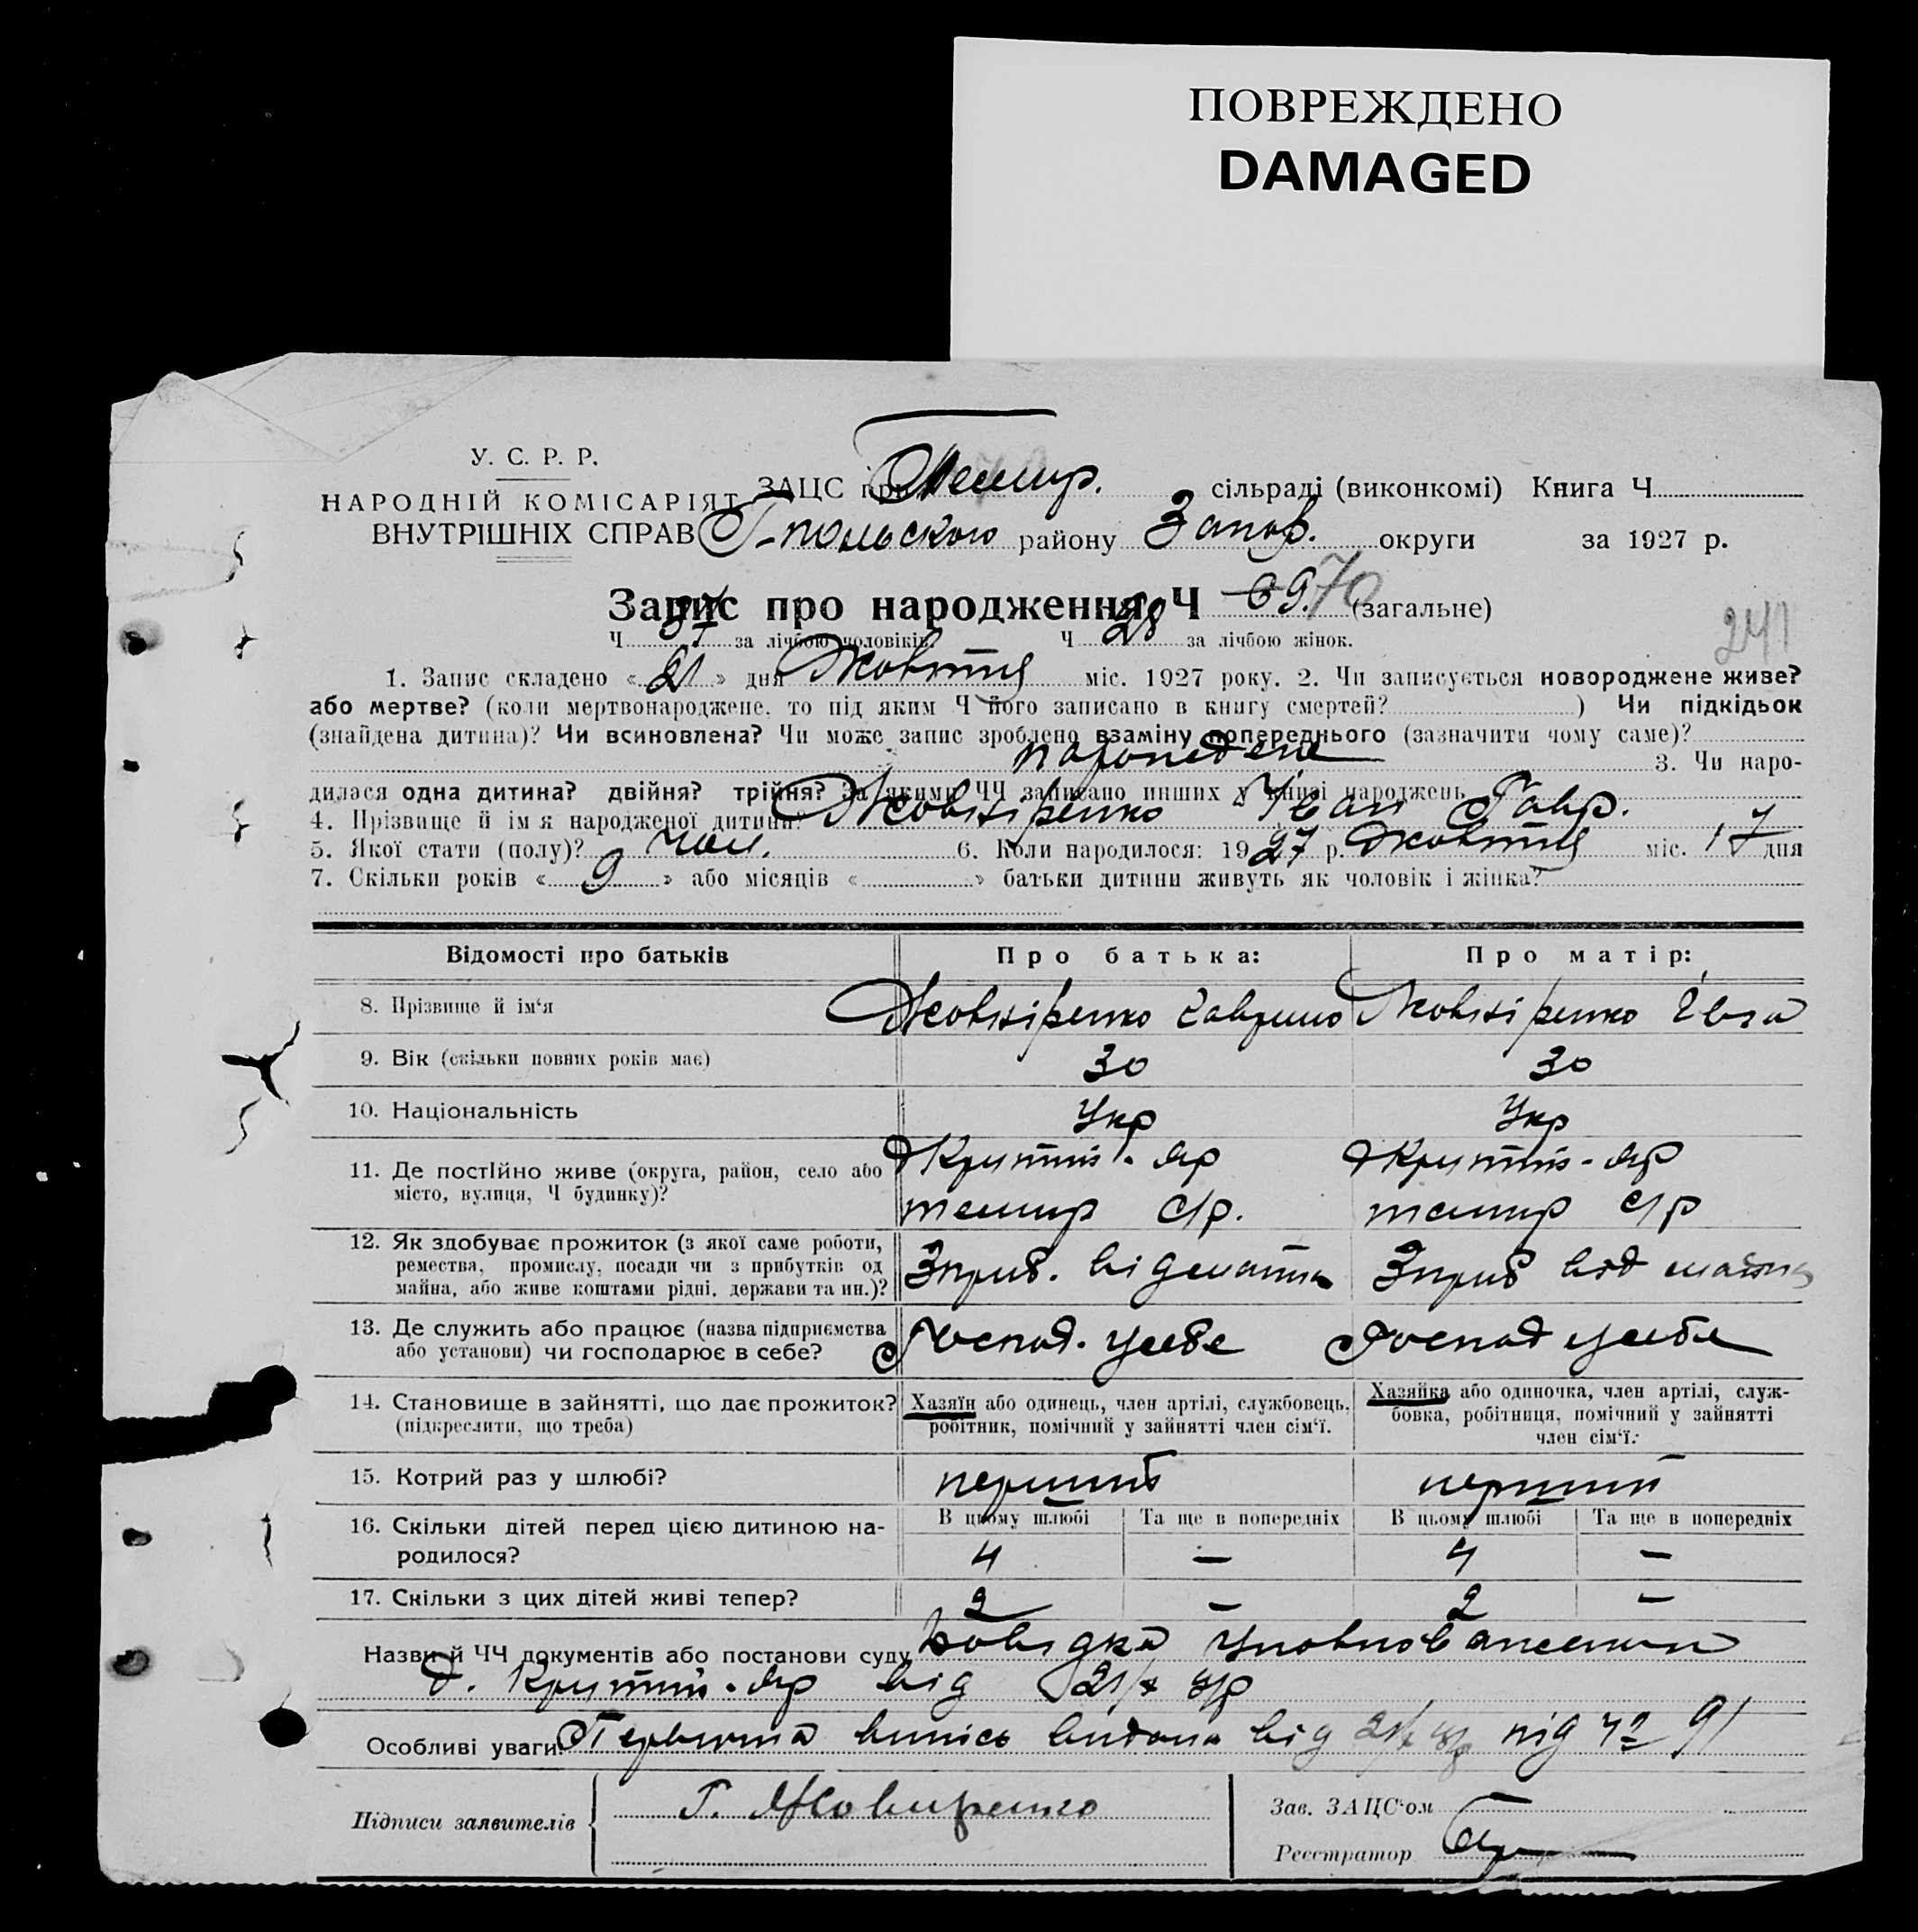 ПОВРЕЖДЕНО
DAMAGED
У. С. Р. Р.
НАРОДНІЙ КОМІСАРІЯТ
ВНУТРІШНІХ СПРАВ
ЗАЦС при Темир. сільраді (виконкомі) Книга Ч
Г-польского району Запор. округи за 1927 р.
Запис про народження Ч 69. 70 (загальне)
241
Ч за лічбою чоловіків. Ч 28 за лічбою жінок.
1. Запис складено « 21 » дня Жовтня міс. 1927 року. 2. Чи записується новороджене живе?
або мертве? (коли мертвонароджене, то під яким Ч його записано в книгу смертей? ) Чи підкідьок
(знайдена дитина)? Чи всиновлена? Чи може запис зроблено взаміну попереднього (зазначити чому саме)?
3. Чи наро-
дилася одна дитина? двійня? трійня? За якими ЧЧ записано инших у книзі народжень
4. Прізвище й ім'я народженої дитини? Жовніренко Іван Гавр.
5. Якої стати (полу)? чол. 6. Коли народилося: 19 27 р. Жовтня міс. 17 дня
7. Скільки років « 9 » або місяців « » батьки дитини живуть як чоловік і жінка?
Відомості про батьків Про батька: Про матір:
8. Прізвище й ім'я Жовніренко Гаврило Жовніренко Евга
9. Вік (скільки повних років має) 30 30
10. Національність Укр Укр
11. Де постійно живе (округа, район, село або Х Крутий-Яр Х Крутий-Яр
місто, вулиця, Ч будинку)? темир с/р. темир с/р
12. Як здобуває прожиток (з якої саме роботи,
ремества, промислу, посади чи з прибутків од Зприб. від майна Зприб від майна
майна, або живе коштами рідні, держави та ин.)?
13. Де служить або працює (назва підприємства Господ. усебе Господ усебе
або установи) чи господарює в себе?
14. Становище в зайнятті, що дає прожиток? Хазяїн або одинець, член артілі, службовець, Хазяйка або одиночка, член артілі, служ-
(підкреслити, що треба) робітник, помічний у зайнятті член сім'ї. бовка, робітниця, помічний у зайнятті
член сім'ї.
15. Котрий раз у шлюбі? перший перший
16. Скільки дітей перед цією дитиною на- В цьому шлюбі Та ще в попередніх В цьому шлюбі Та ще в попередніх
родилося? 4 — 4 —
17. Скільки з цих дітей живі тепер? 2 — 2 —
Назви й ЧЧ документів або постанови суду Довідка
х. Крутий-Яр від 21/X
Особливі уваги: Первична випись видана від 21/X під № 91
Підписи заявителів Г. Жовниренко
Зав. ЗАЦС'ом
Реєстратор